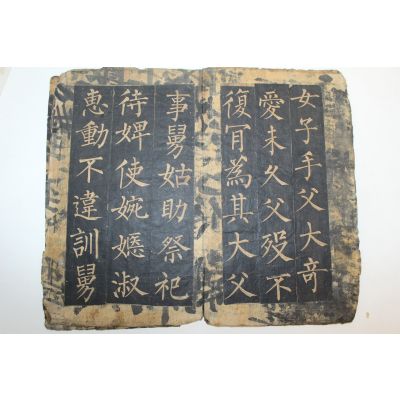 女子手父大奇
愛未久父歿不
復冐為其大父
事舅姑助祭祀
待婢使婉嫕淑
惠動不違訓舅